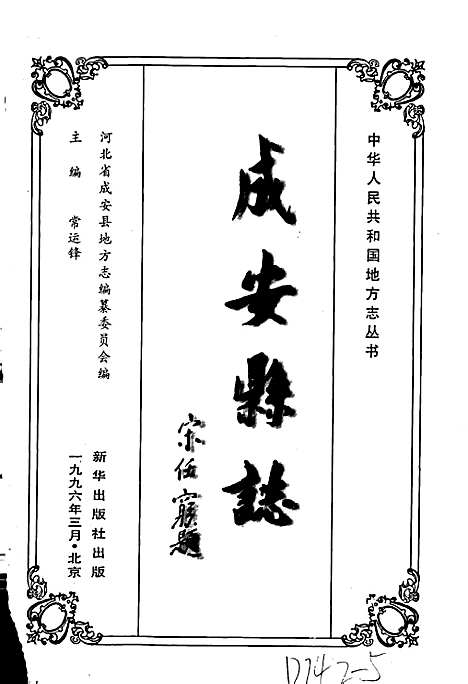 中华人民共和国地方志丛书
成安縣誌
宋任窮題
河北省成安县地方志编纂委员会编
主编 常运锋
新华出版社出版
一九九六年三月·北京
D742-5